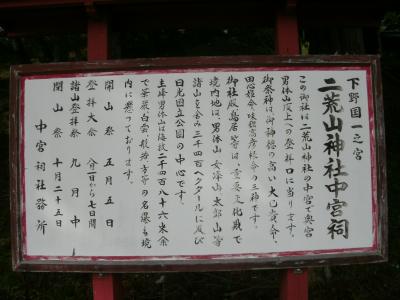 下野国一之宮
二荒山神社中宮祠
この御社は二荒山神社の中宮で奥宮
男体山頂上への登拝口に当ります。
御祭神は御神徳の高い大己貴命、
田心姫命、味耜高彦根命の三神です。
御社殿鳥居等は、重要文化財で
境内地は、男体山、女峰山、太郎山等
諸山を含み三千四百ヘクタールに及び
日光国立公園の中心です。
主峰男体山は海抜二千四百八十六米余
で華厳、白雲、般若、方等の名瀑も境
内に懸っております。
開山祭 五月五日
登拝大祭 八月一日から七日間
諸山登拝祭 九月中
閉山祭 十月二十五日
中宮祠社務所